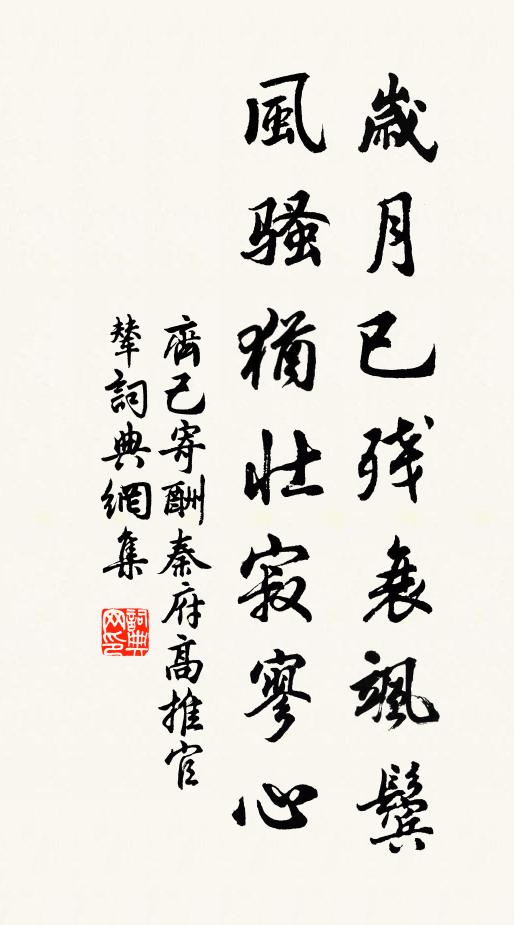 歲月已殘衰颯鬢
風騷猶壯寂寥心
齊己寄酬秦府高推官
輦詞典網集
詞典網印